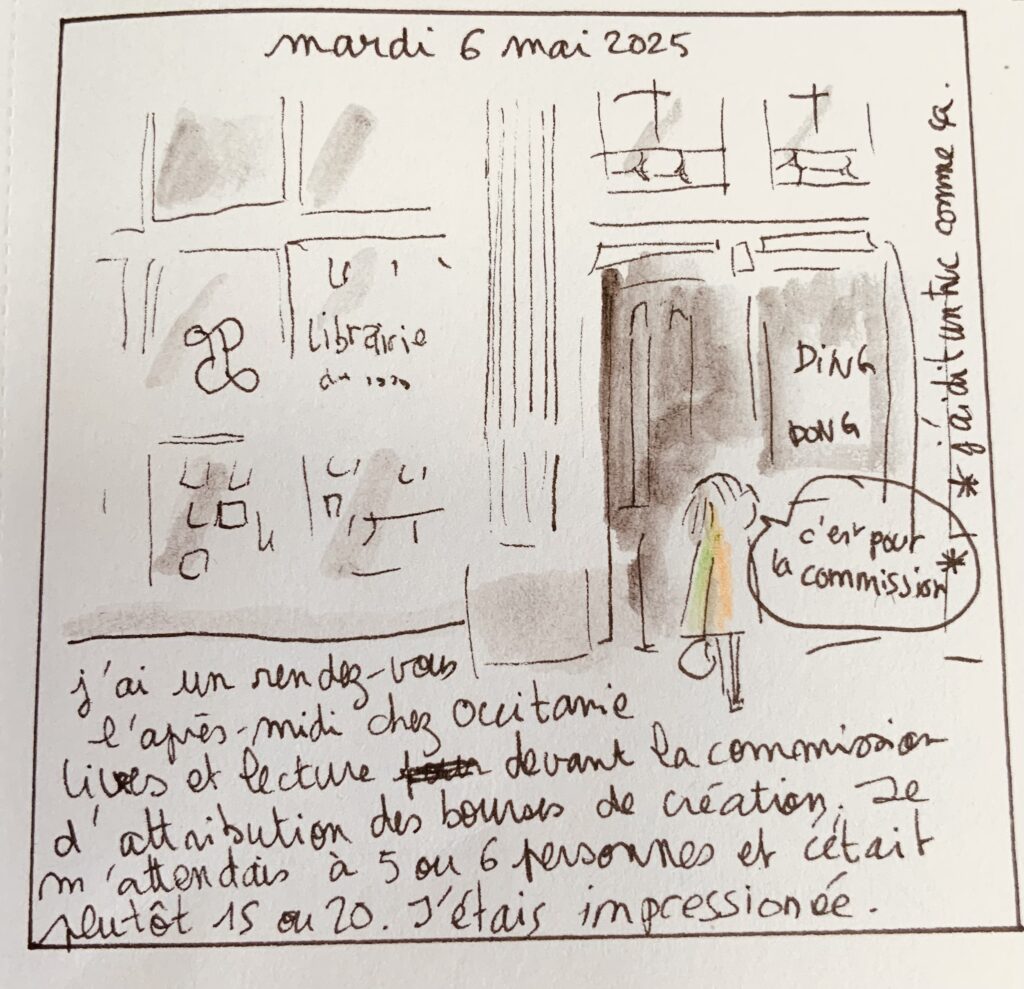 mardi 6 mai 2025
Librairie
du
DING
DONG
c'est pour
la commission*
* j'ai dit un truc comme ça.
j'ai un rendez-vous
l'après-midi chez Occitanie
livres et lecture devant la commission
d'attribution des bourses de création. Je
m'attendais à 5 ou 6 personnes et c'était
plutôt 15 ou 20. J'étais impressionée.